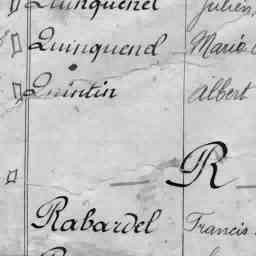 Quinquenel Julien
Quinquend Maria
Quintin Albert
R
Rabardel Francis